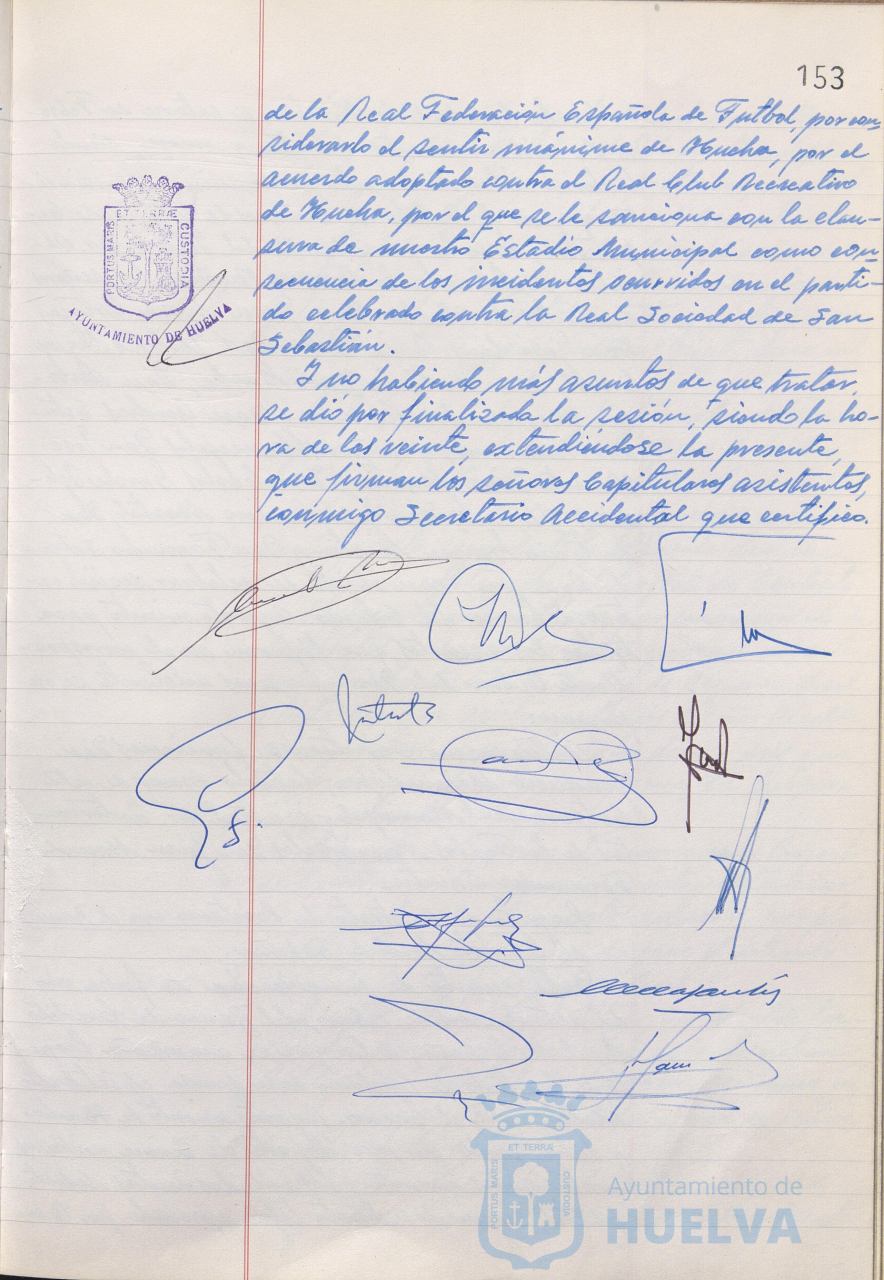 153
de la Real Federación Española de Futbol, por con-
siderarlo el sentir unánime de Huelva, por el
acuerdo adoptado contra el Real Club Recreativo
de Huelva, por el que se le sanciona con la clau-
sura de nuestro Estadio Municipal como con-
secuencia de los incidentes ocurridos en el parti-
do celebrado contra la Real Sociedad de San
Sebastián.
Y no habiendo más asuntos de que tratar,
se dió por finalizada la sesión, siendo la ho-
ra de las veinte, extendiéndose la presente,
que firman los señores Capitulares asistentes,
conmigo Secretario Accidental que certifico.
PORTUS MARIS ET TERRÆ CUSTODIA
AYUNTAMIENTO DE HUELVA
PORTUS MARIS ET TERRÆ CUSTODIA
Ayuntamiento de
HUELVA